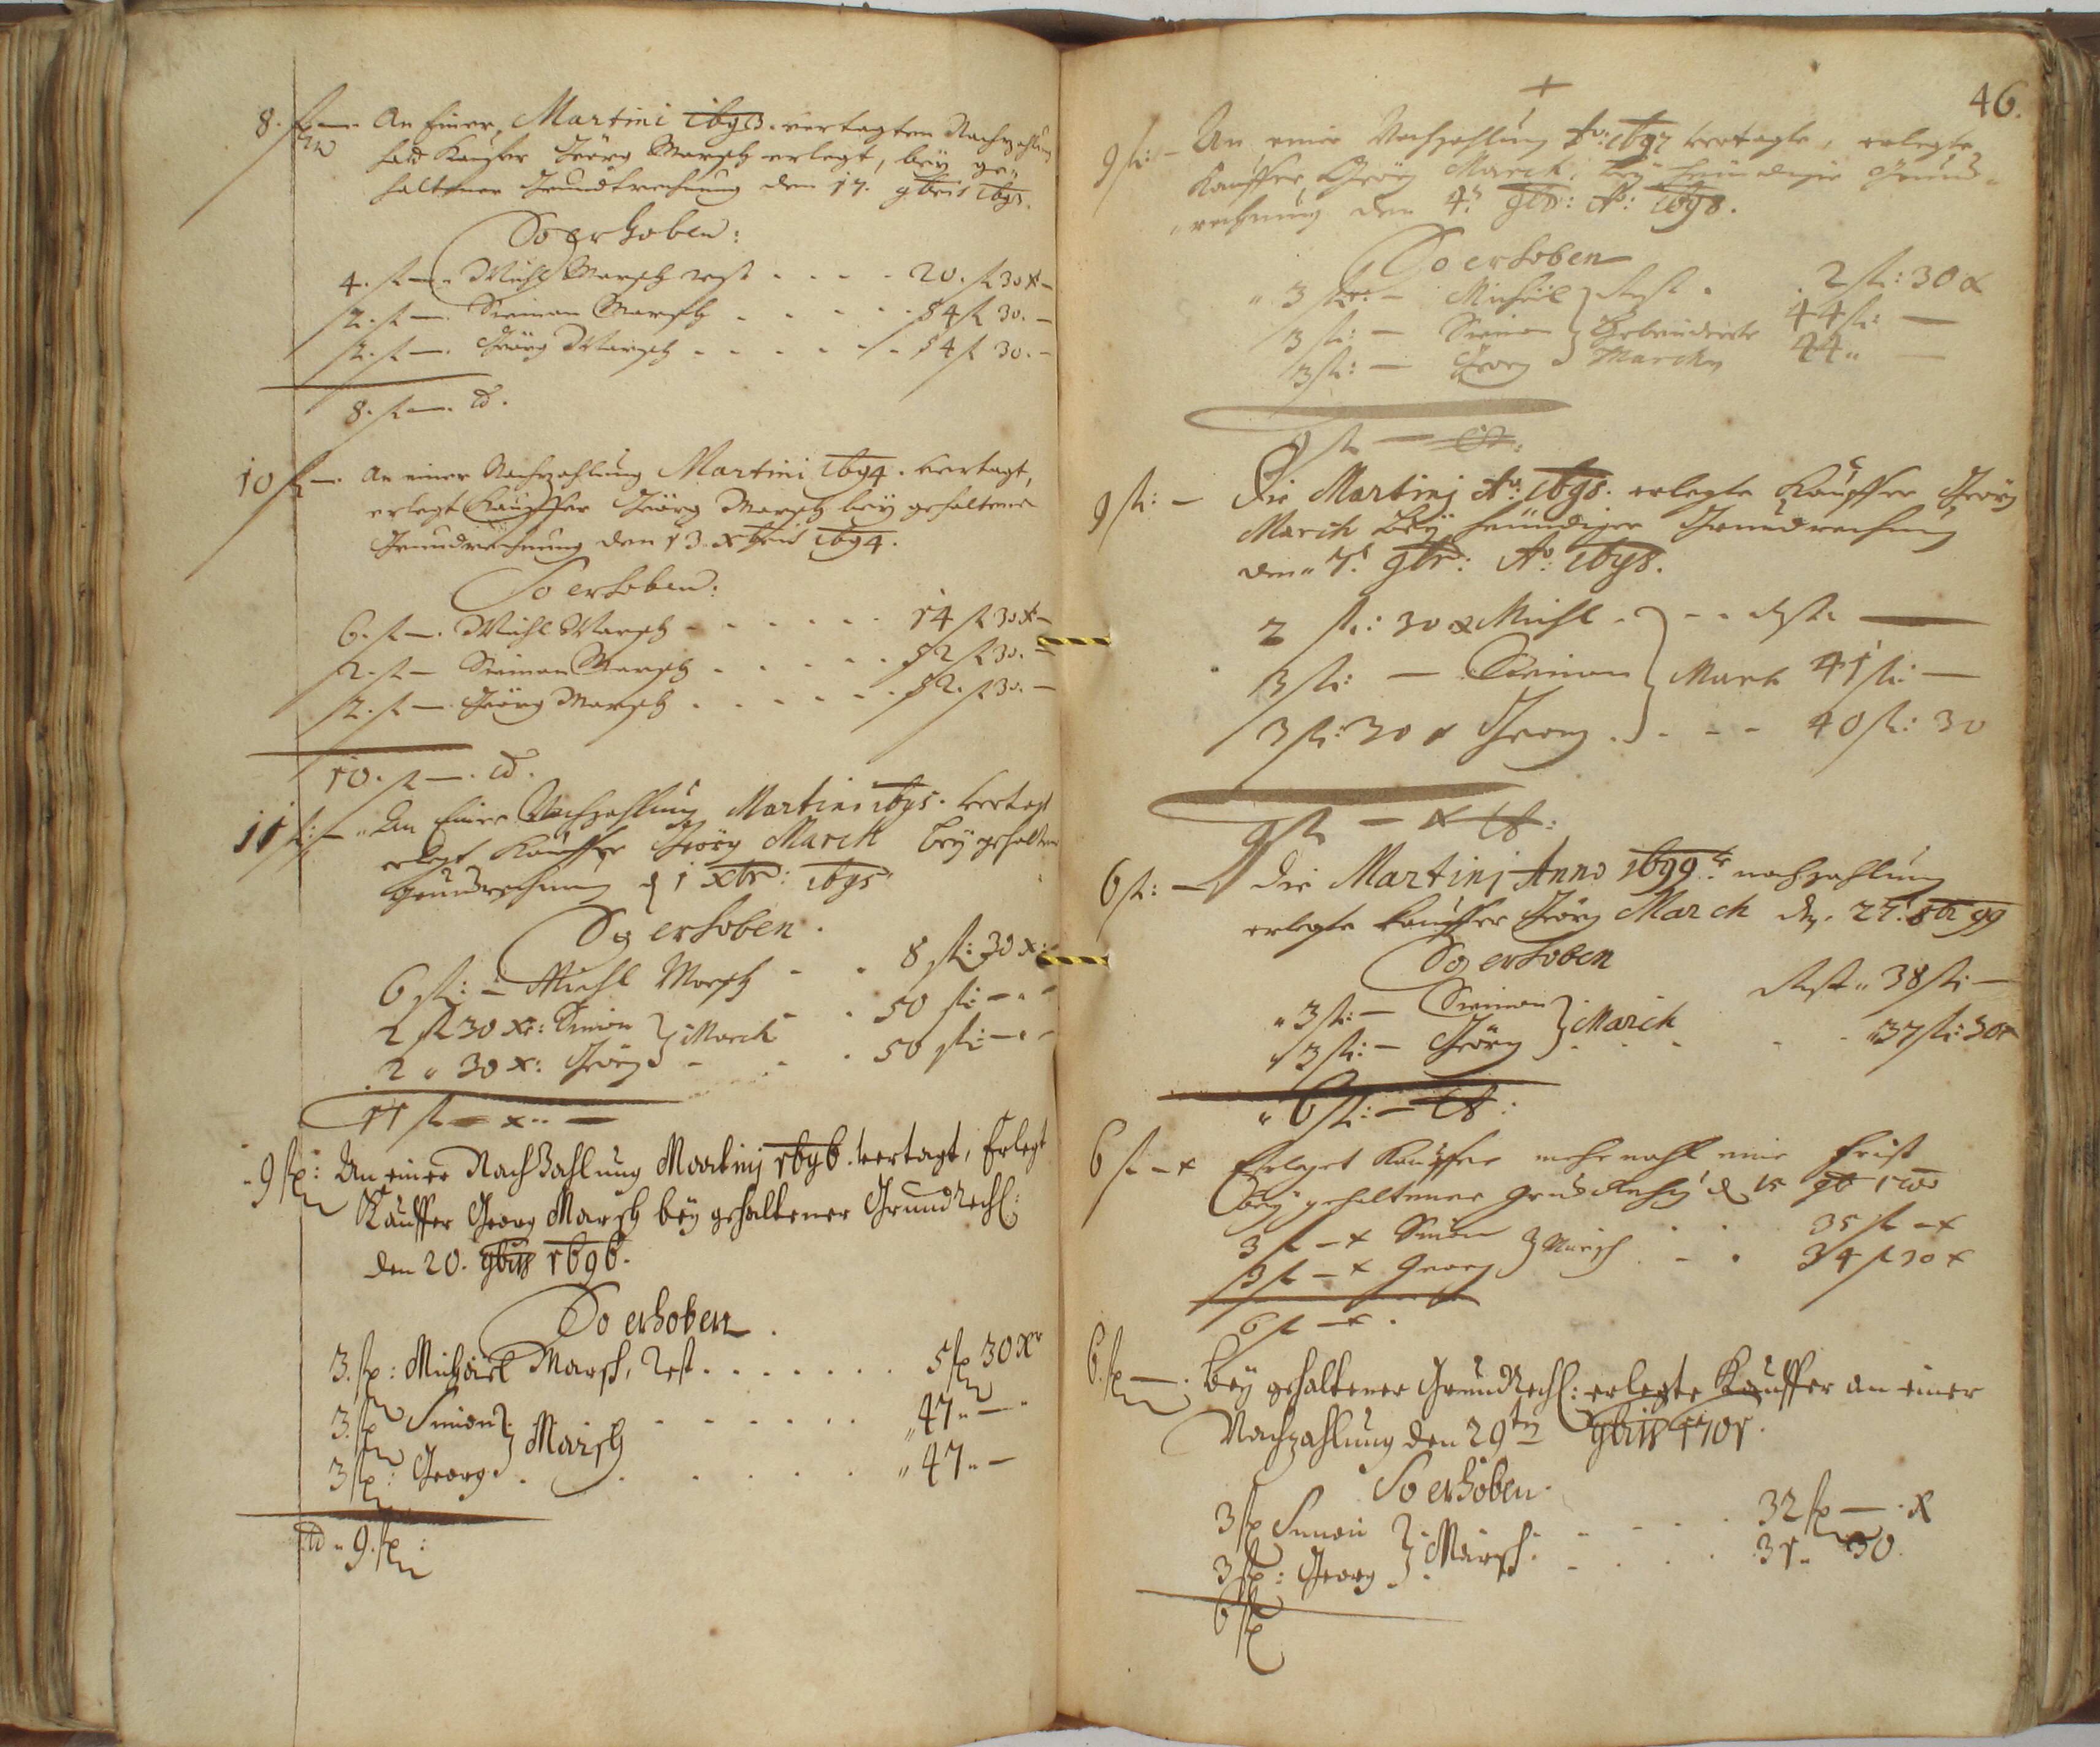 8. fl —. An Einer Martini 1693. vertagten Nachzahlung
hat Kauffer Geörg Marsch erlegt, bey ge-
haltener Grundtrechnung den 17. 9bris 1693.
So erhoben:
4. fl —. Michl Marsch rest . . . . 20. fl 30 x —
2. fl —. Siemon Marsch . . . . . 54 fl 30. —
2. fl —. Geörg Marsch . . . . . . 54 fl 30. —
8. fl —. id.
10 fl —. An einer Nachzahlung Martini 1694. vertagt,
erlegt Kauffer Geörg Marsch bey gehaltener
Grundrechnung den 13. xbris 1694.
So erhoben:
6. fl —. Michl Marsch . . . . . . 14 fl 30 x —
2. fl — Siemon Marsch . . . . . . 52 fl 30. —
2. fl —. Geörg Marsch . . . . . . 52. fl 30. —
10. fl —. id.
11 fl: — An Einer Nachzahlung Martini 1695. vertagt
erlegt Kauffer Geörg March bey gehaltener
grundrechnung d 1 xbr: 1695
So erhoben.
6 fl: — Michl Marsch - . 8 fl: 30 x:
2 fl 30 xr: Simon } March - . 50 fl: — -
2 " 30 x: Geörg - . . 50 fl: — -
11 fl — x —
9 fl: An einer NachZahlung Martinj 1696. vertagt, Erlegt
Kauffer Georg Marsch bey gehaltener GrundRech:
den 20. 9bris 1696.
So erhoben.
3. fl: Michael Marsch, Rest . . . . . . . 5 fl 30 xr
3. fl Simon } Marsch - - - - . . . " 47 " — "
3 fl: Georg . . . . . . " 47 " —
id " 9. fl:
46.
9 fl: — An einer Nachzahlung Ao: 1697 vertagte, erlegte
Kauffer Geörg March, bey heundiger Grund-
rechnung den 4t 9br: Ao: 1698.
So erhoben
" 3 fl: — Micheil } Rest . . 2 fl: 30 x
3 fl: — Simon } Gebrüedere 44 fl: —
3 fl: — Georg } Marchen 44 " —
9 fl — id:
9 fl: — Die Martinj Ao: 1698. erlegte Kauffer Geörg
March bey heundiger Grundrechnung
den 7t 9br: Ao: 1698.
2 fl: 30 x Michl . } - - Rest —
3 fl: — Siemon } March 41 fl: —
3 fl: 30 x Georg . } . - - - 40 fl: 30
9 fl — x id:
6 fl: — Die Martinj Anno 1699te nachzahlung
erlegte Kauffer Geörg March den 27. 8br 99
So erhoben
" 3 fl: — Siemon } March Rest " 38 fl: —
" 3 fl: — Geörg } . . . . . " 37 fl: 30 x
" 6 fl: — id:
6 fl — x Erleget Kauffer mehrmahl eine Frist
bey gehaltener grundRechng d 15 9b 1700
3 fl — x Simon } Marsch . . . 35 fl — x
3 fl — x Georg . - . 34 fl 30 x
6 fl — x .
6. fl —. Bey gehaltener GrundRech: erlegte Kauffer an einer
Nachzahlung den 29ten 9bris 1701.
So erhoben.
3 fl Simon } Marsch . - - - . . 32 fl — . x
3 fl: Georg . . - . . . 31 " 30.
6 fl